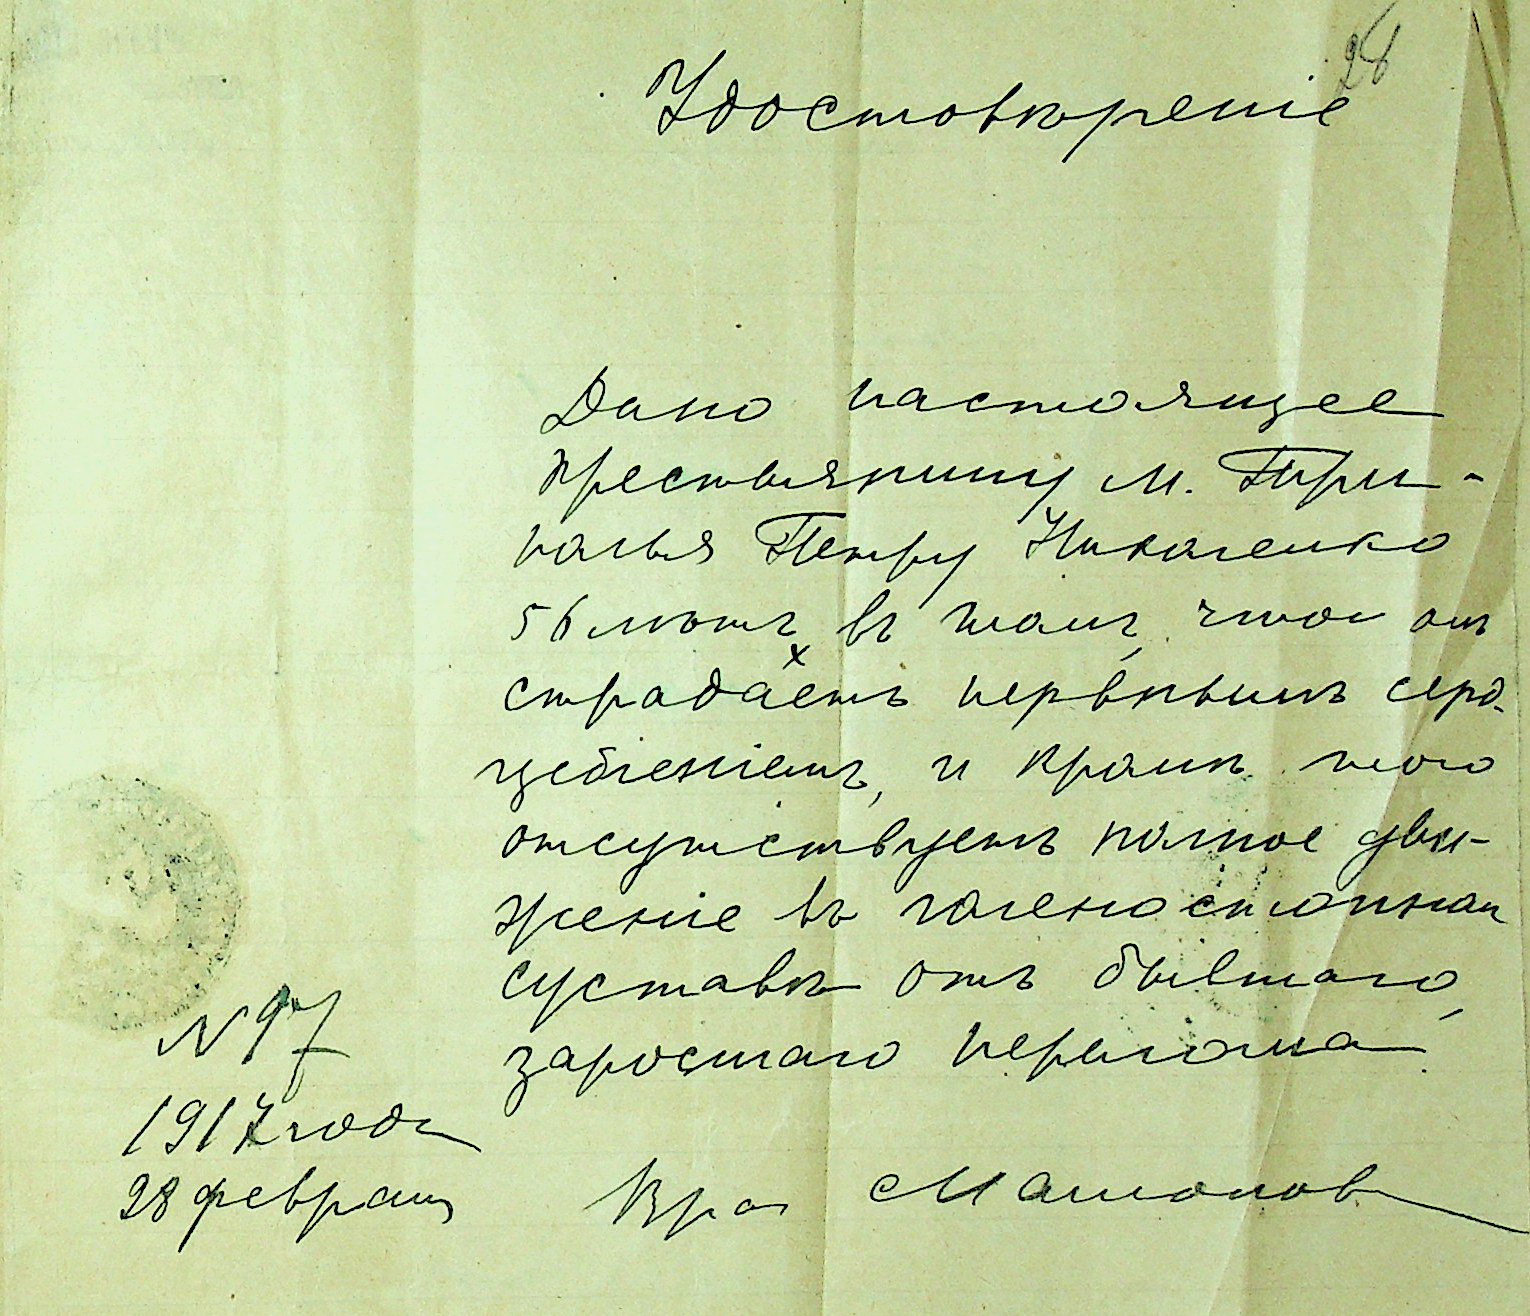 28
Удостовѣреніе
Дано настоящее
крестьянину м. Три-
полья Петру Николенко
56 лѣтъ въ томъ, что онъ
страдаетъ нервнымъ серд-
цебіеніемъ, и кромѣ того
отсутствуетъ полное дви-
женіе въ голеностопном
суставѣ отъ бывшаго,
заросшаго перелома
N 97
1917 года
28 февраля
Врач